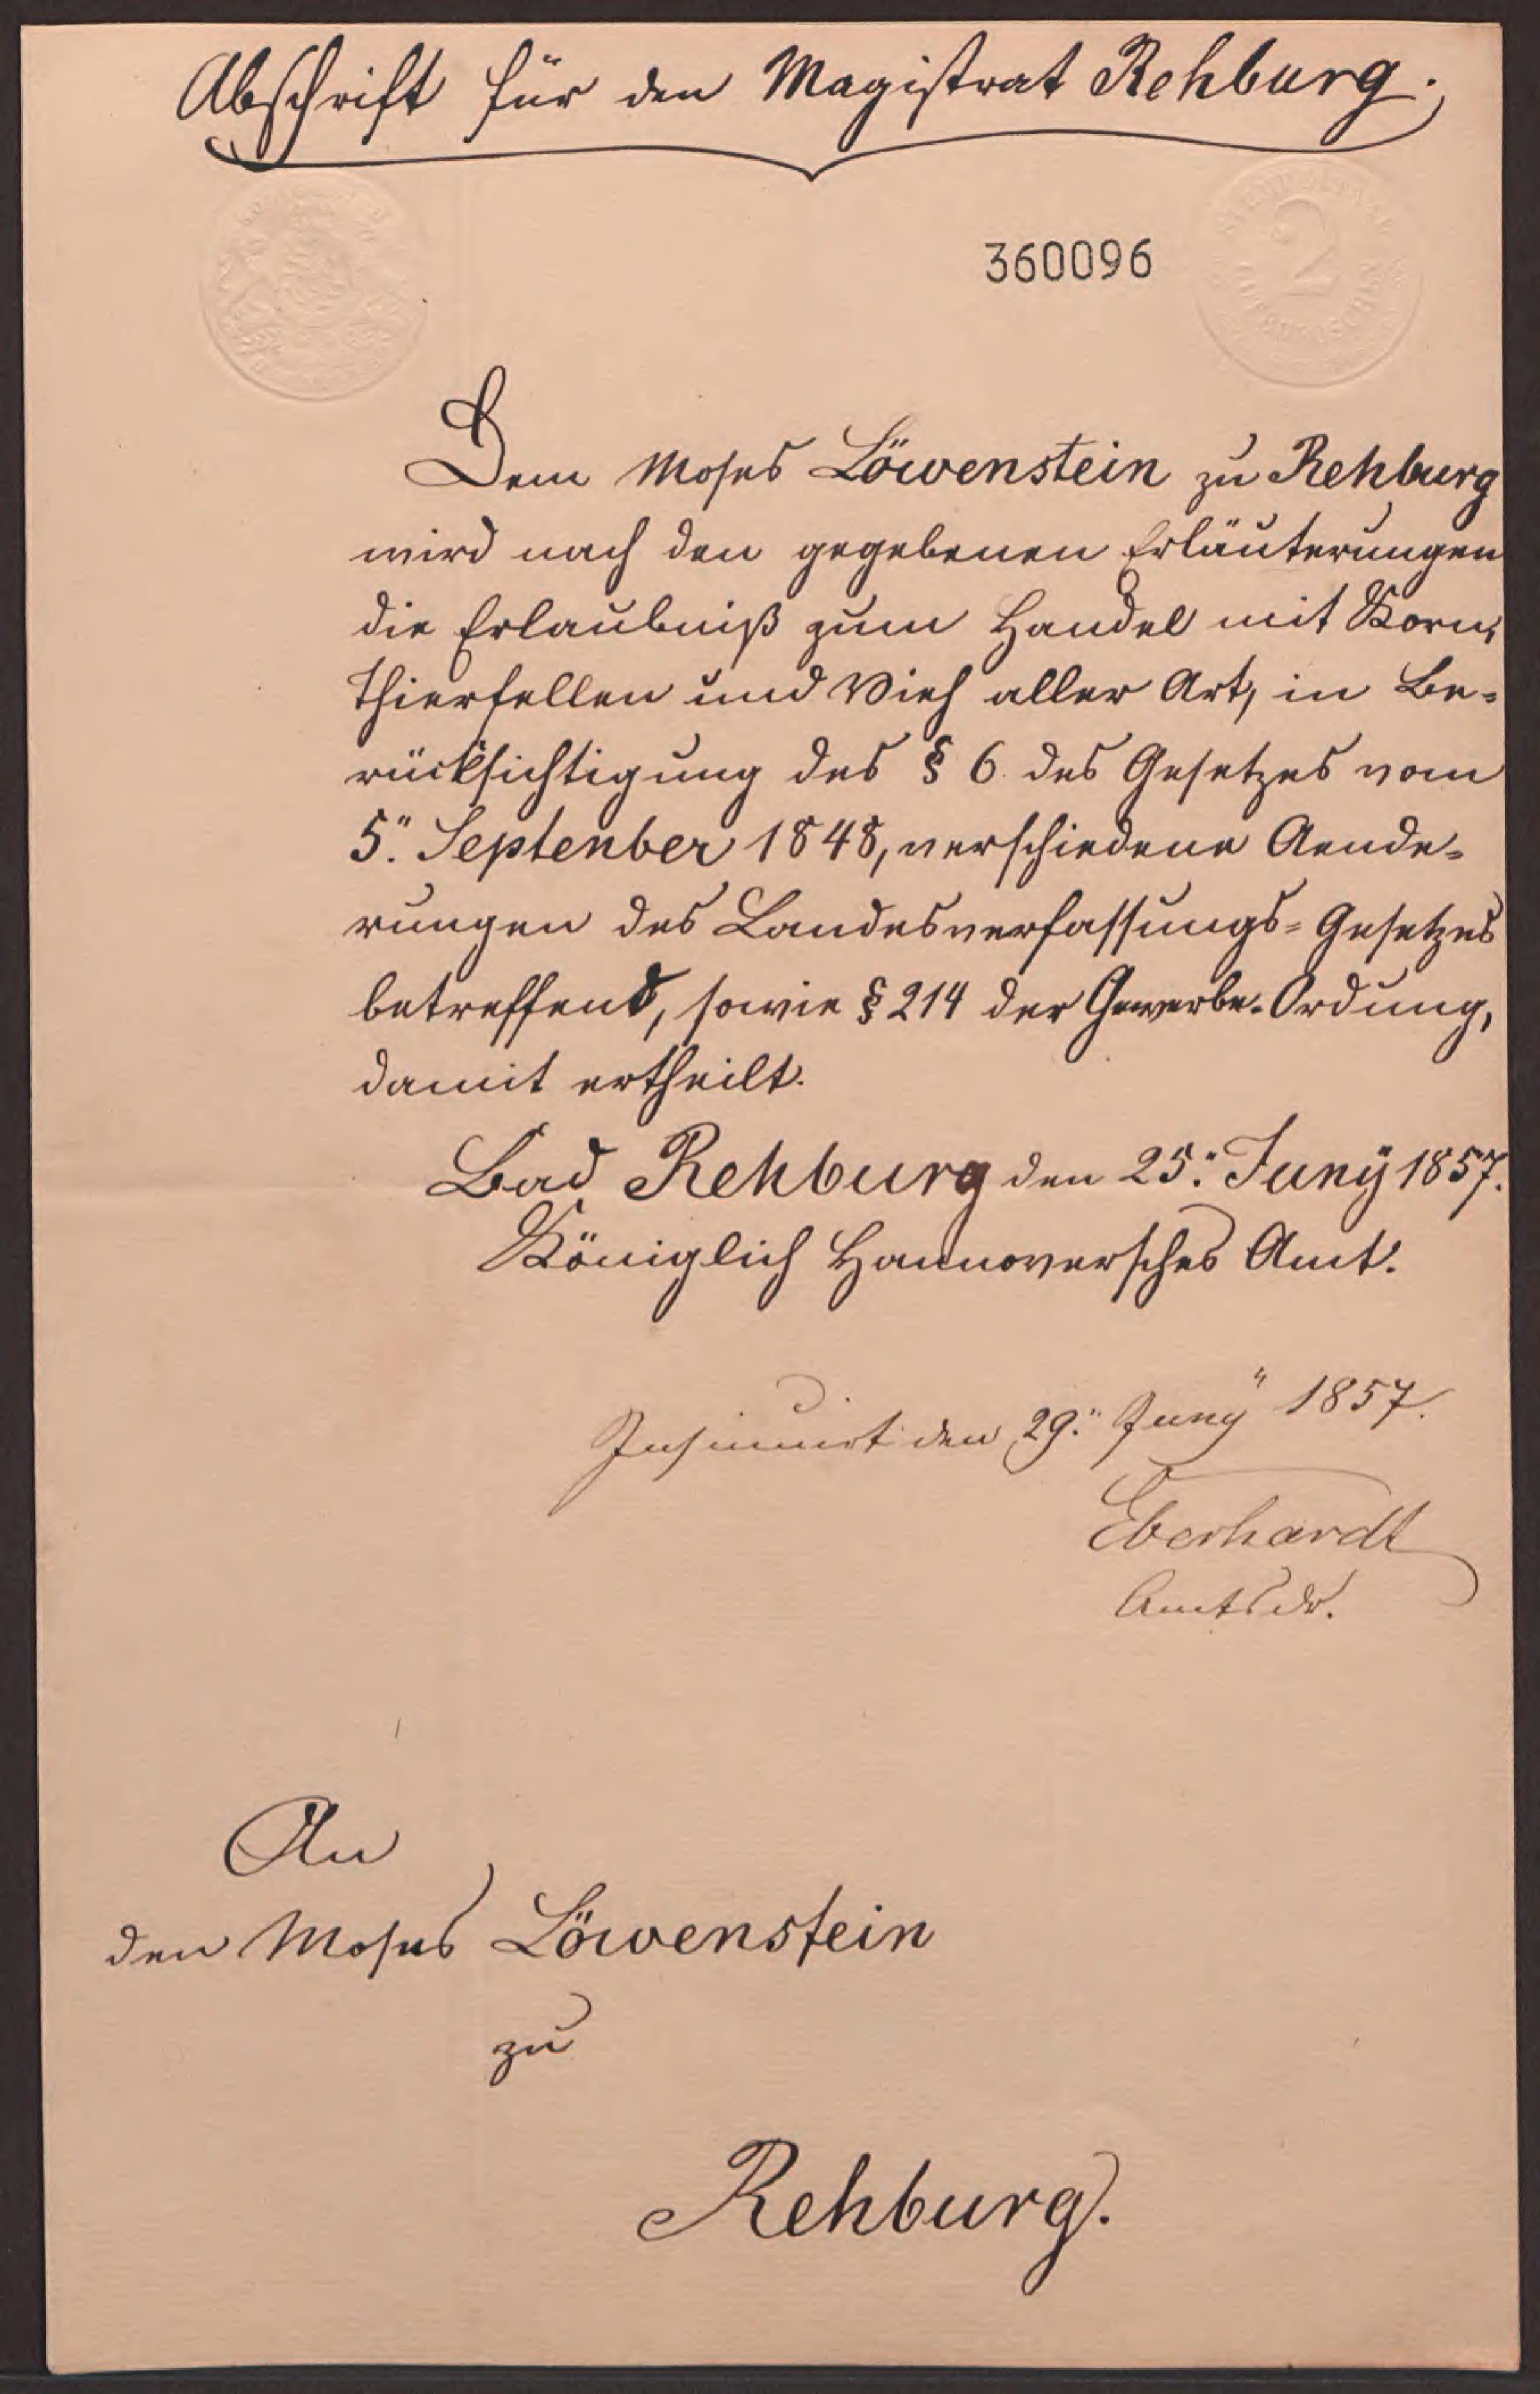 Abschrift für den Magistrat Rehburg.
360096
2
Dem Moses Löwenstein zu Rehburg
wird nach den gegebenen Erläuterungen
die Erlaubniß zum Handel mit Korn,
Thierfellen und Vieh aller Art, in Be-
rücksichtigung des § 6. des Gesetzes vom
5." Septenber 1848, verschiedene Aende-
rungen des Landesverfassungs-Gesetzes
betreffend, sowie § 214 der Gewerbe-Ordung,
damit ertheilt.
Bad Rehburg den 25." Juny 1857.
Königlich Hannoversches Amt.
Insinuirt den 29." Juny 1857.
Eberhardt
An
den Moses Löwenstein
zu
Rehburg.